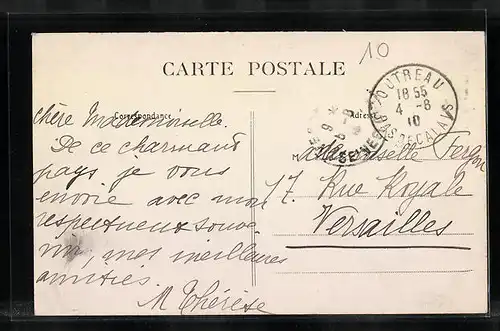 10
CARTE POSTALE
Correspondance
Adresse
OUTREAU
18 55
4 - 8
10
PAS DE CALAIS
SEINE
Chère Mademoiselle.
De ce charmant
pays je vous
envoie avec mon
respectueux souve-
nir, mes meilleures
amitiés.
M Thérèse
Mademoiselle
17 Rue Royale
Versailles